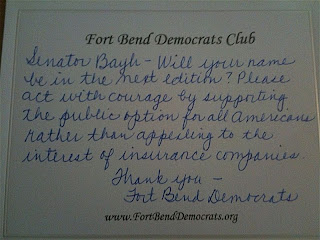 Fort Bend Democrats Club
Senator Bayh - Will your name
be in the next edition? Please
act with courage by supporting
the public option for all Americans
rather than appealing to the
interest of insurance companies.
Thank you -
Fort Bend Democrats
www.FortBendDemocrats.org